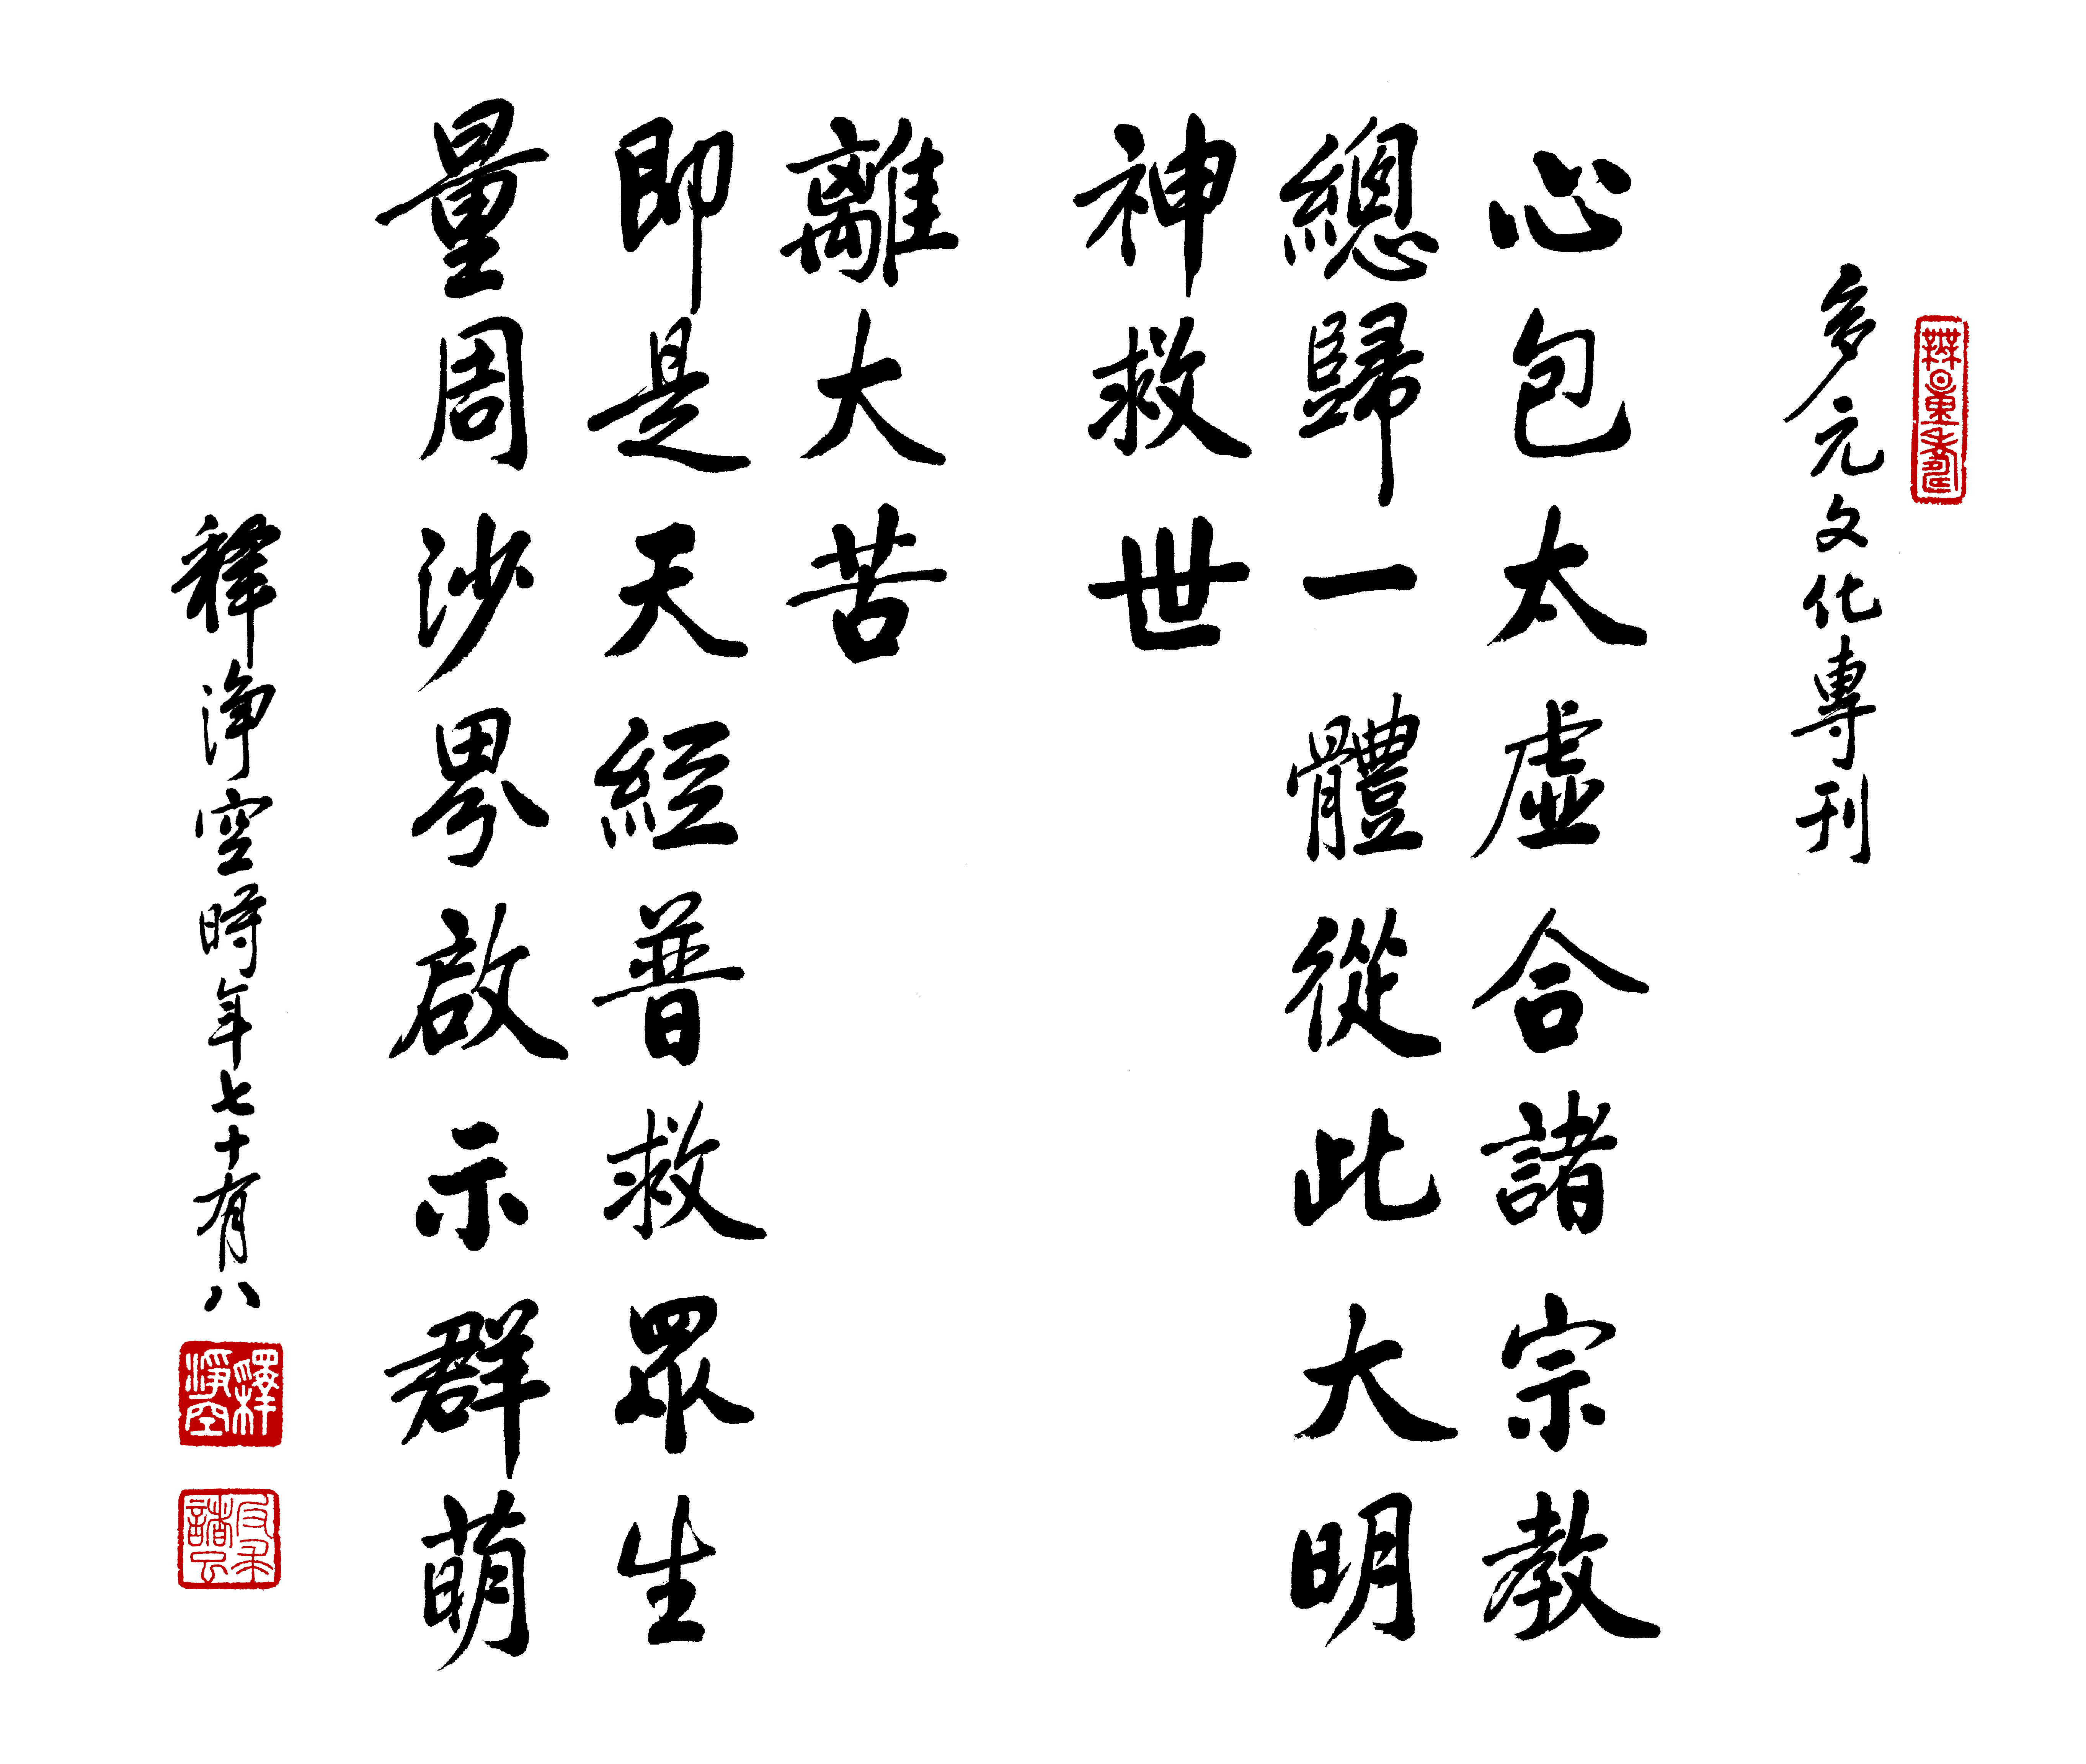 無量壽
多元文化專刊
心包太虛合諸宗教
總歸一體從此大明
神救世
離大苦
即是天經普救眾生
量周沙界啟示群萌
釋淨空時年七十有八
釋淨空